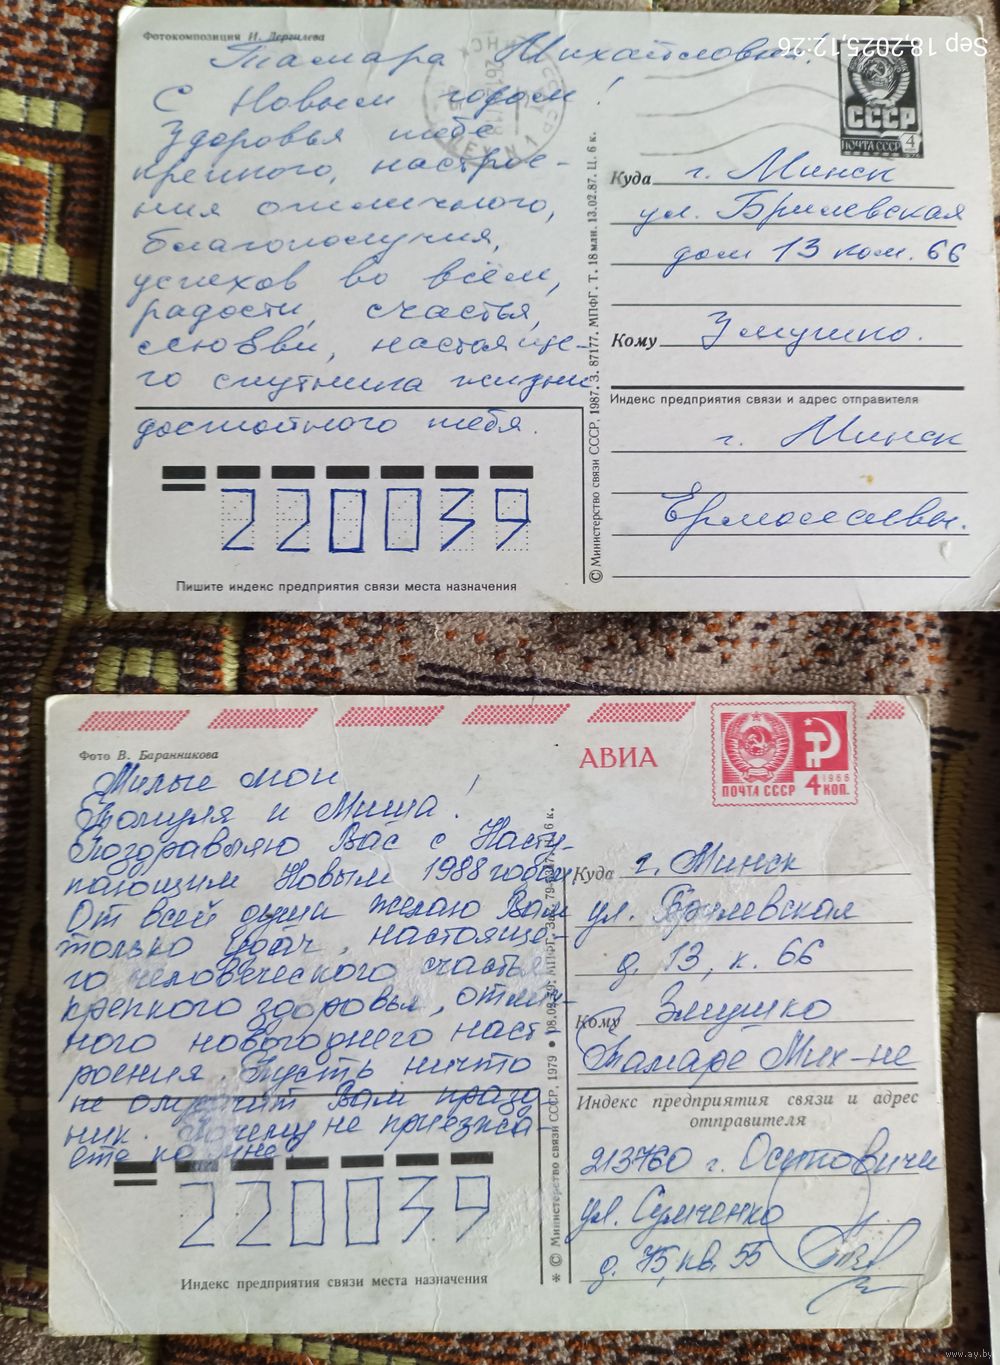 Sep 18,2025,12:26
Фотокомпозиция И. Дергилева
Тамара Михайловна.
С Новым годом!
Здоровья тебе
крепкого, настрое-
ния отличного,
благополучия,
успехов во всём,
радости, счастья,
любви, настояще-
го спутника жизни
достойного тебя.
СССР
ПОЧТА СССР 4
Куда г. Минск
ул. Брилевская
дом 13 ком. 66
Кому Змушко.
Индекс предприятия связи и адрес отправителя
г. Минск
220039
Пишите индекс предприятия связи места назначения
© Министерство связи СССР, 1987. З. 87177. МПФГ. Т. 18 млн. 13.02.87. Ц. 6 к.
Фото В. Баранникова
АВИА
ПОЧТА СССР 4 КОП. 1966
Милые мои
Томуля и Миша!
Поздравляю Вас с Насту-
пающим Новым 1988 годом
От всей души желаю Вам
только удач, настояще-
го человеческого счастья
крепкого здоровья, отлич-
ного новогоднего наст-
роения. Пусть ничто
не омрачит Вам празд-
ник. Почему не приезжа-
ете ко мне
Куда г. Минск
ул. Брилевская
д. 13, к. 66
Кому Змушко
Тамаре Мих-не
Индекс предприятия связи и адрес
отправителя
213760 г. Осиповичи
ул. Сумченко
д. 75, кв. 55
220039
Индекс предприятия связи места назначения
* © Министерство связи СССР, 1979 • 08.08.79. МПФГ.
www.ay.by